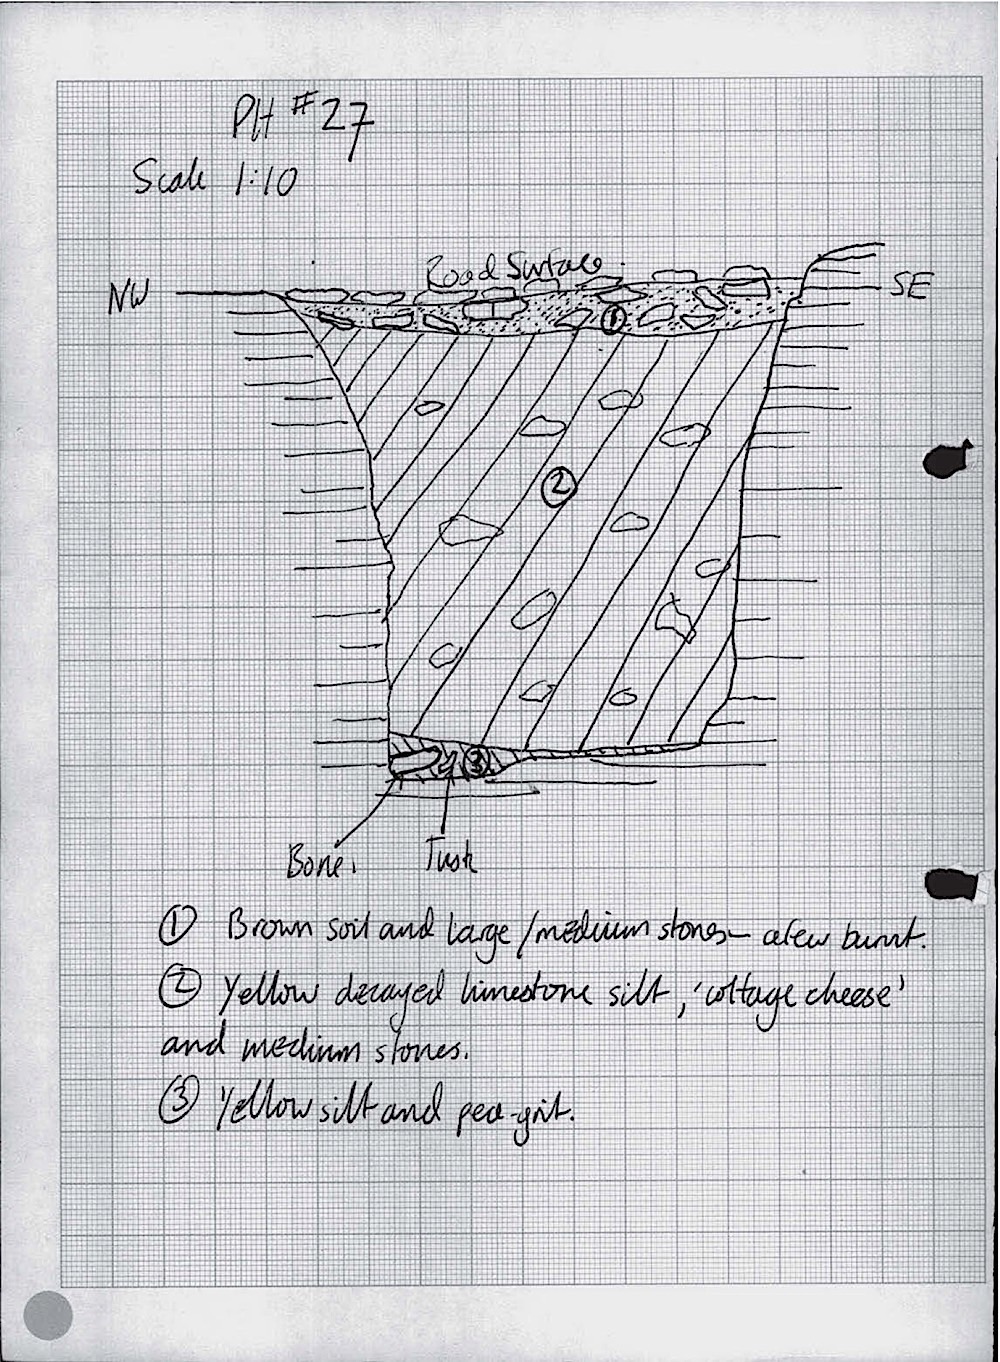 PH #27
Scale 1:10
Road Surface.
NW
SE
1
2
3
Bone.
Tusk
① Brown soil and large/medium stones – a few burnt.
② Yellow decayed limestone silt, 'cottage cheese'
and medium stones.
③ Yellow silt and pea-grit.